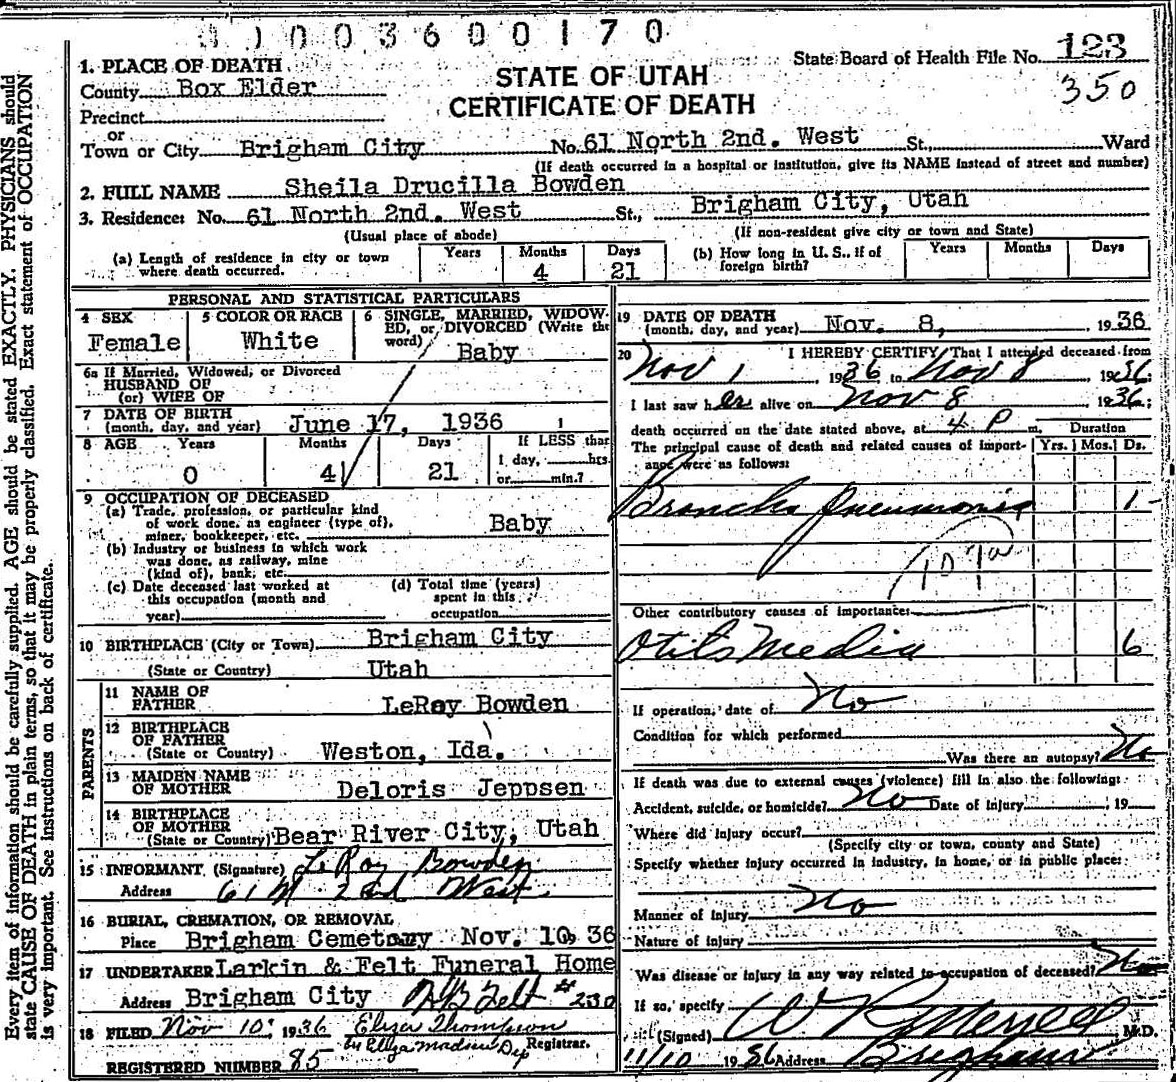 0 1 0 0 3 6 0 0 1 7 0
State Board of Health File No. 123
350
STATE OF UTAH
CERTIFICATE OF DEATH
1. PLACE OF DEATH
County Box Elder
Precinct
or
Town or City Brigham City No. 61 North 2nd. West St., Ward
(If death occurred in a hospital or institution, give its NAME instead of street and number)
2. FULL NAME Sheila Drucilla Bowden
3. Residence: No. 61 North 2nd. West St., Brigham City, Utah
(Usual place of abode) (If non-resident give city or town and State)
(a) Length of residence in city or town where death occurred. Years Months 4 Days 21
(b) How long in U. S., if of foreign birth? Years Months Days
PERSONAL AND STATISTICAL PARTICULARS
4 SEX Female
5 COLOR OR RACE White
6 SINGLE, MARRIED, WIDOWED, or DIVORCED (Write the word) Baby
6a If Married, Widowed, or Divorced
HUSBAND OF
(or) WIFE OF
7 DATE OF BIRTH
(month, day, and year) June 17, 1936
8 AGE Years 0 Months 4 Days 21 If LESS than 1 day, hrs. or min.?
9 OCCUPATION OF DECEASED
(a) Trade, profession, or particular kind
of work done, as engineer (type of),
miner, bookkeeper, etc. Baby
(b) Industry or business in which work
was done, as railway, mine
(kind of), bank, etc.
(c) Date deceased last worked at
this occupation (month and
year)
(d) Total time (years)
spent in this
occupation
10 BIRTHPLACE (City or Town) Brigham City
(State or Country) Utah
PARENTS
11 NAME OF
FATHER LeRoy Bowden
12 BIRTHPLACE
OF FATHER
(State or Country) Weston, Ida.
13 MAIDEN NAME
OF MOTHER Deloris Jeppsen
14 BIRTHPLACE
OF MOTHER
(State or Country) Bear River City, Utah
15 INFORMANT (Signature) LeRoy Bowden
Address 61 N 2nd West
16 BURIAL, CREMATION, OR REMOVAL
Place Brigham Cemetery Nov. 10, 36
17 UNDERTAKER Larkin & Felt Funeral Home
Address Brigham City Felt #230
18 FILED Nov 10, 1936 Eliza Thompson
Registrar.
Eliza Madsen Dep
REGISTERED NUMBER 85
19 DATE OF DEATH
(month, day, and year) Nov. 8, 1936
20 I HEREBY CERTIFY, That I attended deceased from
Nov 1 1936 to Nov 8 1936;
I last saw her alive on Nov 8 1936;
death occurred on the date stated above, at 4 P m. Duration
The principal cause of death and related causes of importance were as follows: Yrs. Mos. Ds.
Broncho pneumonia 1
107a
Other contributory causes of importance:
Otitis Media 6
If operation, date of No
Condition for which performed
Was there an autopsy? No
If death was due to external causes (violence) fill in also the following:
Accident, suicide, or homicide? No Date of injury , 19
Where did injury occur?
(Specify city or town, county and State)
Specify whether injury occurred in industry, in home, or in public place:
Manner of injury No
Nature of injury
Was disease or injury in any way related to occupation of deceased? No
If so, specify
(Signed) W R Merrell M.D.
11/10 1936 Address Brigham
Every item of information should be carefully supplied. AGE should be stated EXACTLY. PHYSICIANS should
state CAUSE OF DEATH in plain terms, so that it may be properly classified. Exact statement of OCCUPATION
is very important. See instructions on back of certificate.